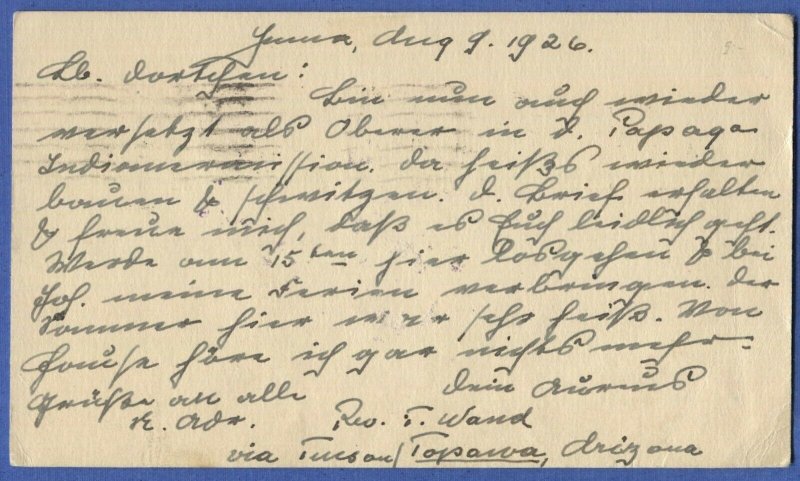 Yuma, Aug 9. 1926.
Lb. Dortchen:
Bin nun auch wieder
versetzt als Oberer in d. Papago
Indianermission. Da heißts wieder
bauen & schwitzen. D. Brief erhalten
& freue mich, daß es Euch leidlich geht.
Werde am 15ten hier losgehen & bei
Jos. meine Ferien verbringen. Der
Sommer hier war sehr heiß. Von
Hause höre ich gar nichts mehr.
Grüße an alle Dein
n. Adr. Rev. T. Wand
via Tucson/Topawa, Arizona